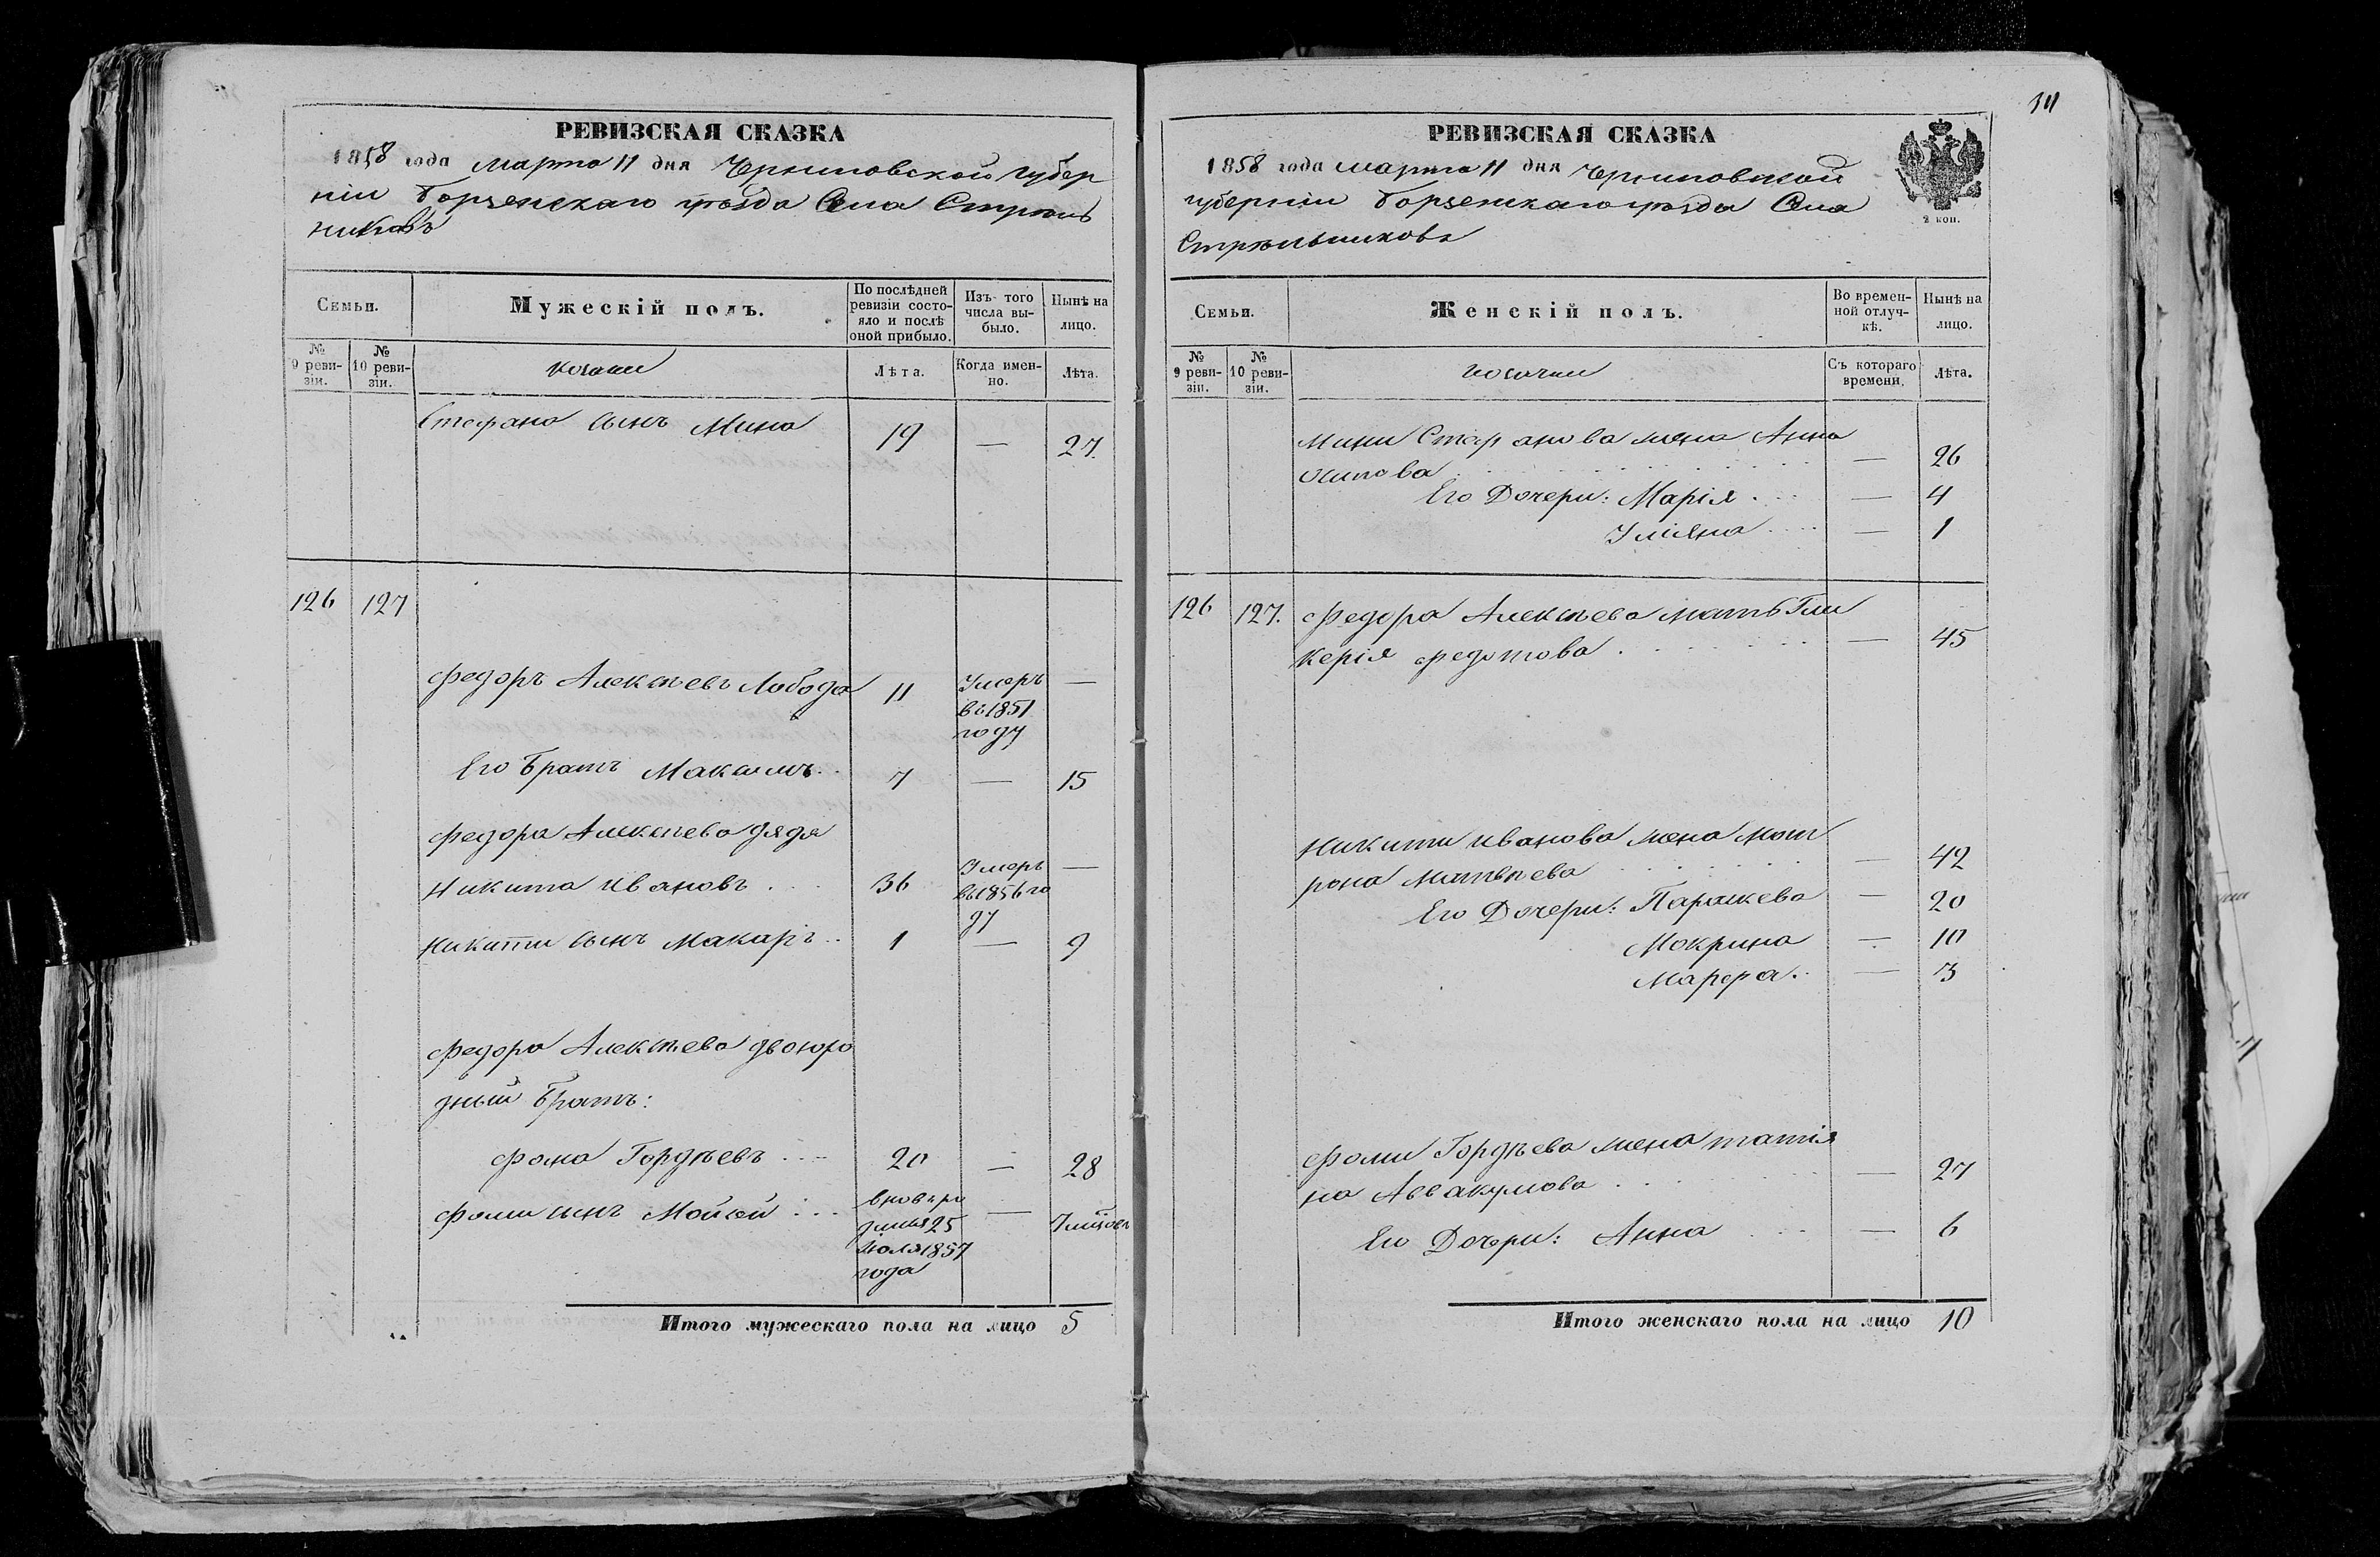 РЕВИЗСКАЯ СКАЗКА
1858 года Марта 11 дня Черниговской Губер
ніи Борзенскаго уѣзда Села Стрѣль
никовъ
Семьи.
Мужескій полъ.
По послѣдней ревизіи состояло и послѣ оной прибыло.
Изъ того числа выбыло.
Нынѣ на лицо.
№ 9 ревизіи.
№ 10 ревизіи.
козаки
Лѣта.
Когда именно.
Лѣта.
Стефана сынъ Мина 19 — 27.
126 127
Федоръ Алексѣевъ Лобода 11 Умеръ —
въ 1851
году
Его Братъ Максимъ. 7 — 15
Федора Алексѣева дядя
Никита Ивановъ . . . 36 Умеръ —
въ 1856 го
ду
Никиты сынъ Макаръ . . 1 — 9
Федора Алексѣева двоюро
дный Братъ:
Фома Гордѣевъ . . . 20 — 28
Фомы сынъ Мойсей . . . вновь ро —
25
Июля 1857
года
Итого мужескаго пола на лицо 5
311
РЕВИЗСКАЯ СКАЗКА
1858 года марта 11 дня Черниговской
губерніи Борзенскаго уѣзда Села
Стрѣльниковъ
2 коп.
Семьи.
Женскій полъ.
Во временной отлучкѣ.
Нынѣ на лицо.
№ 9 ревизіи.
№ 10 ревизіи.
козачки
Съ котораго времени.
Лѣта.
Мины Стефанова жена Анна
Осипова . . . — 26
Его Дочери: Марія . . . — 4
Уліяна . . . — 1
126 127. Федора Алексѣева мать Гли
керія Федотова . . . — 45
Никиты Иванова жена Мот
рона Матвѣева . . . — 42
Его Дочери: Параскева — 20
Мокрина — 10
Марфа. . — 3
Фомы Гордѣева жена татія
на Аввакумова . . . — 27
Его Дочери: Анна . . . — 6
Итого женскаго пола на лицо 10